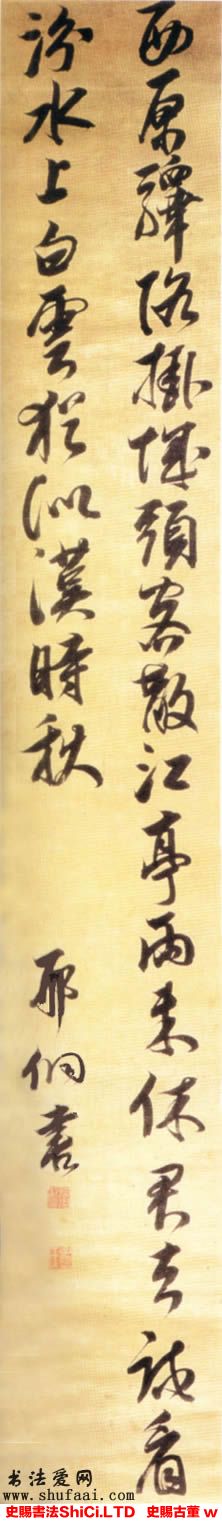 西原驛路掛城頭客散江亭雨未休君去試看
汾水上白雲猶似漢時秋
邢侗書
书法爱网
www.shufaai.com
史賜書法ShiCi.LTD 史賜古董 w